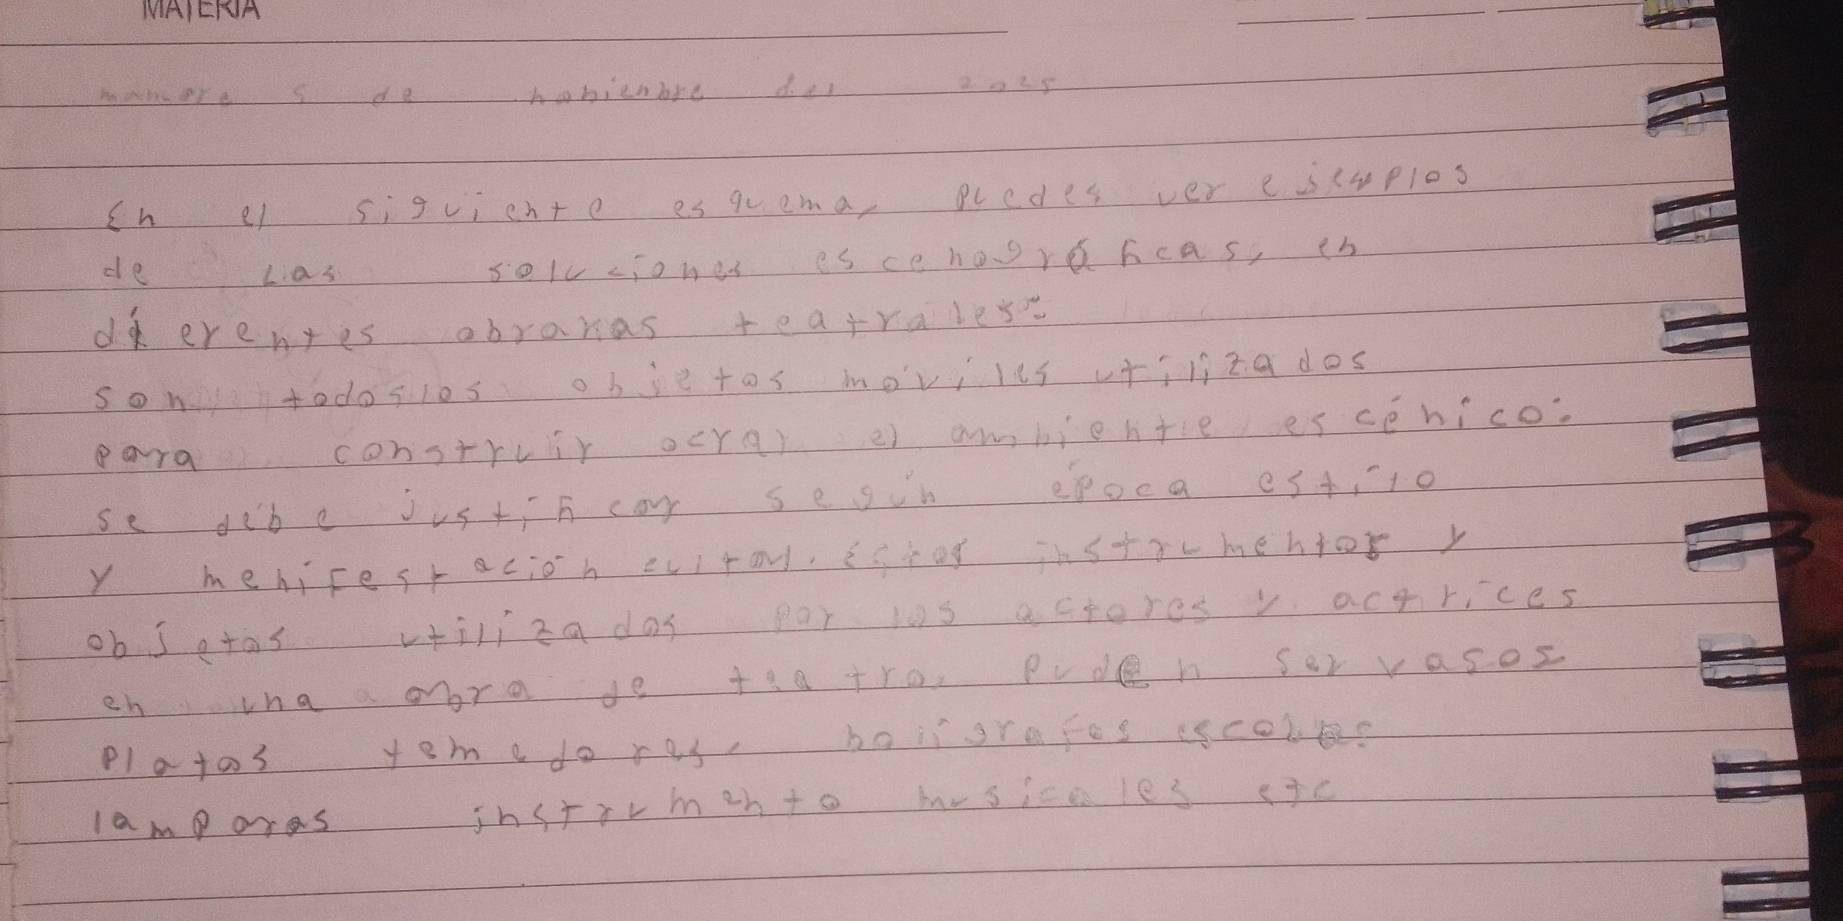 MATERIA
5 de nobienbre del 2025
En el siguiente esquema, puedes ver ejemplos
de Las soluciones escenográficas, en
diferentes obraras teatrales:
son todos los objetos moviles utilizados
para construir ocrar el ambientie escénico:
se debe justificar según época estilo
y menifestación cultal. Estos instrumentos y
objetos utilizados por los actores y actrices
en una obra de teatro, puden ser vasos
platos bolígrafos
lamparas instrumento musicales etc